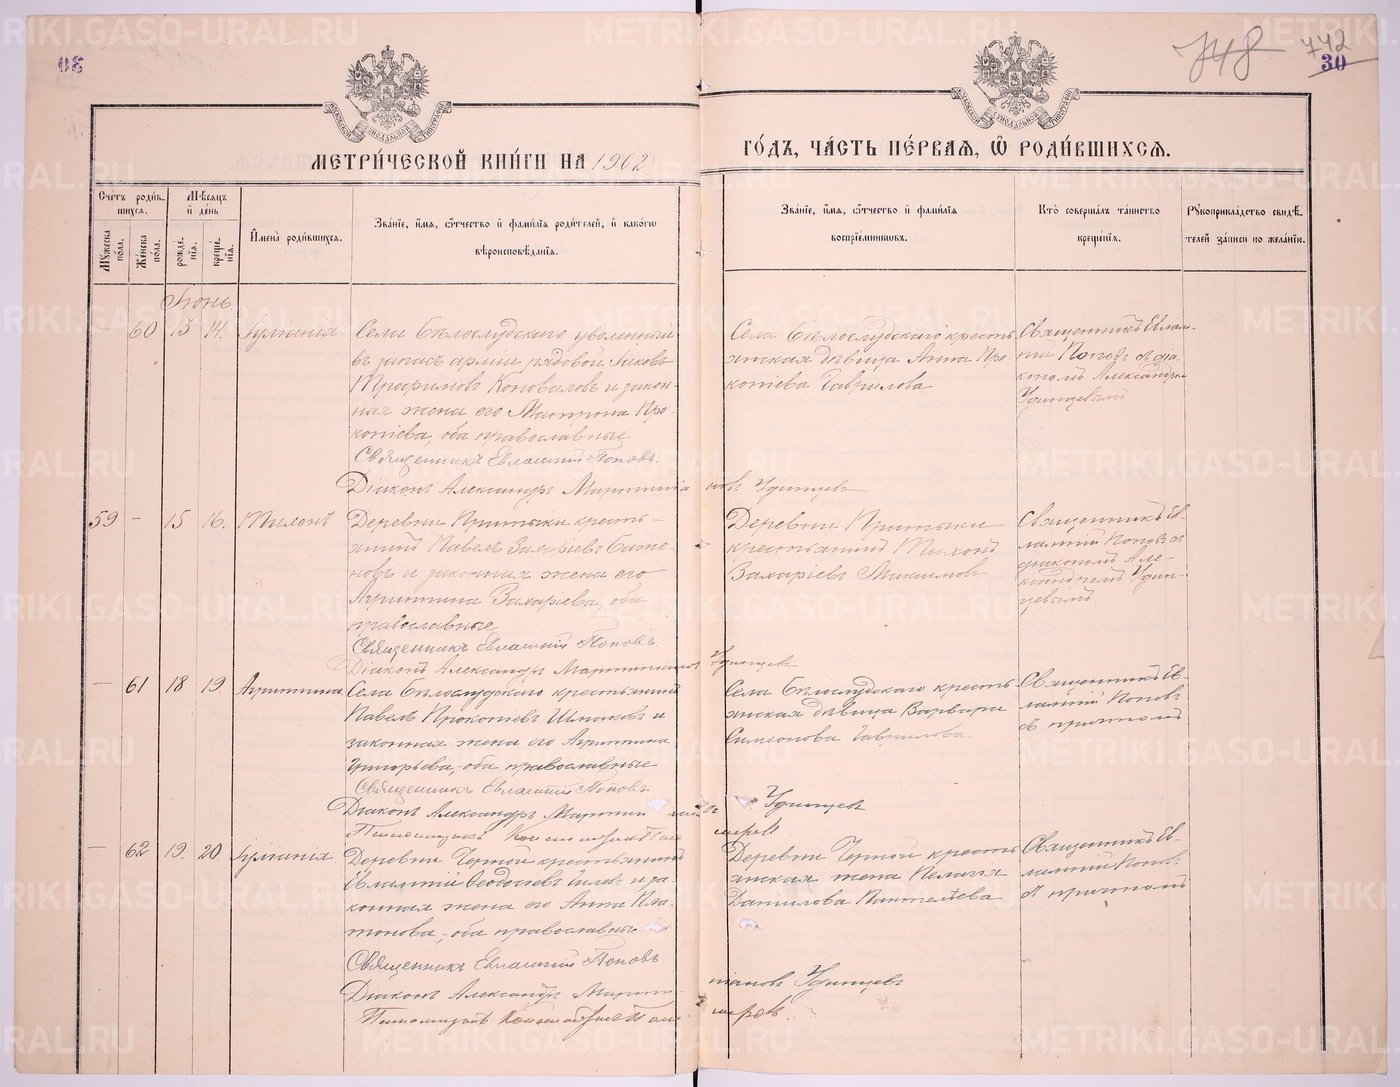 748
742
30
МЕТРИ́ЧЕСКОЙ КНИ́ГИ НА 1902
ГО́ДЪ, ЧА́СТЬ ПЕ́РВАЯ, Ѡ҆ РОДИ́ВШИХСЯ.
Сче́тъ роди́вшихся.
Му́жеска по́ла.
Же́нска по́ла.
Мѣ́сяцъ и҆ де́нь
рожде́нїя.
креще́нїя.
И҆мена̀ роди́вшихся.
Зва́нїе, и҆́мя, ѻ҆́тчество и҆ фами́лїя роди́телей, и҆ како́гѡ вѣроисповѣ́данїя.
Зва́нїе, и҆́мя, ѻ҆́тчество и҆ фами́лїя воспрїе́мниковъ.
Кто̀ соверша́лъ та́инство креще́нїя.
Рꙋкоприкла́дство свидѣ́телей за́писи по жела́нїю.
Іюнь
— 60 13 14. Іуліанія
Села Бѣлослудскаго уволенный
въ запасъ арміи рядовой Іаковъ
Трофимовъ Коноваловъ и закон-
ная жена его Матрона Про-
копіева, оба православные
Священникъ Евлампій Поповъ.
Діаконъ Александръ Мартиніановъ Удинцевъ
Села Бѣлослудскаго кресть
янская дѣвица Анна Про
копіева Гаврилова
Священникъ Евлам-
пій Поповъ съ діа
кономъ Александромъ
Удинцевымъ
59 — 15 16. Тихонъ
Деревни Притыки кресть-
янинъ Павелъ Захаріевъ Баже-
новъ и законная жена его
Агриппина Захарьева, оба
православные
Священникъ Евлампій Поповъ.
Діаконъ Александръ Мартиніановъ Удинцевъ
Деревни Притыки
крестьянинъ Тихонъ
Захаріевъ Максимовъ
Священникъ Ев-
лампій Поповъ съ
діакономъ Але-
ксандромъ Удин-
цевымъ.
— 61 18 19. Агриппина
Села Бѣлослудскаго крестьянинъ
Павелъ Прокопіевъ Шмаковъ и
законная жена его Агриппина
Григорьева, оба православные
Священникъ Евлампій Поповъ.
Діаконъ Александръ Мартиніановъ Удинцевъ
Псаломщикъ
Села Бѣлослудскаго кресть
янская дѣвица Варвара
Симеонова Гаврилова
Священникъ Ев-
лампій Поповъ
съ причтомъ
— 62 19. 20 Іуліанія
Деревни Черной крестьянинъ
Евлампій Ѳеодосіевъ Гилевъ и за-
конная жена его Анна Пла-
тонова, оба православны
Священникъ Евлампій Поповъ.
Діаконъ Александръ Мартиніановъ Удинцевъ
Псаломщикъ
Деревни Черной кресть
янская жена Пелагія
Даниловa Пантелѣева
Священникъ Ев-
лампій Поповъ
съ причтомъ
METRIKI.GASO-URAL.RU